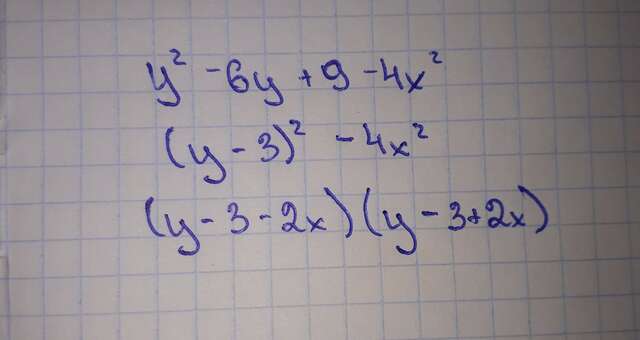 y² - 6y + 9 - 4x²
(y - 3)² - 4x²
(y - 3 - 2x)(y - 3 + 2x)